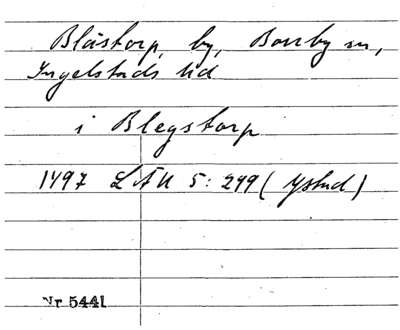 Blåstorp, by, Borrby sn,
Ingelstads hd
i Blegstorp
1497 LÄU 5: 299 (Ystad)
Nr 5441